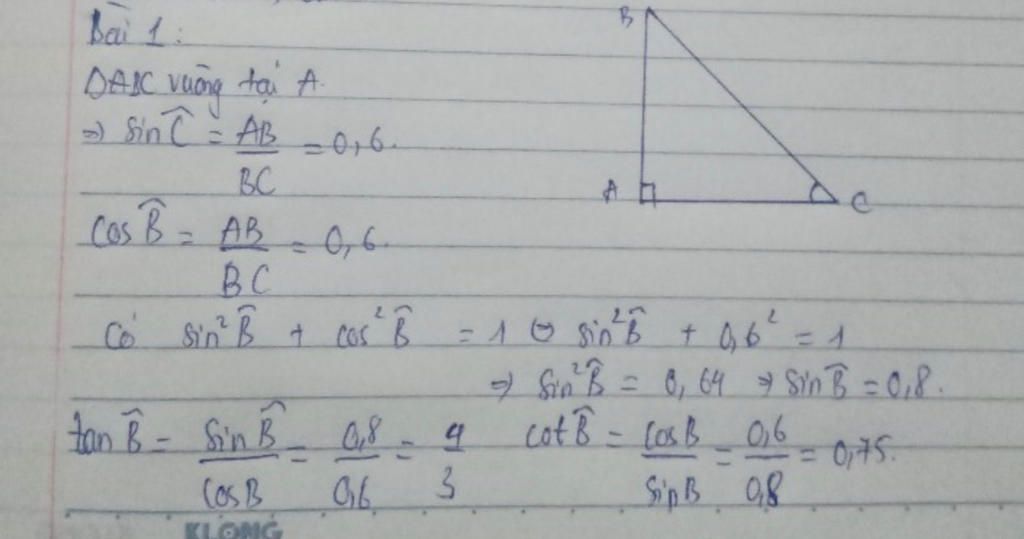 Bài 1:
B
ΔABC vuông tại A.
⇒ sin Ĉ = AB/BC = 0,6.
A
C
cos B̂ = AB/BC = 0,6.
Có sin² B̂ + cos² B̂ = 1 ⇔ sin² B̂ + 0,6² = 1
⇒ sin² B̂ = 0,64 ⇒ sin B̂ = 0,8.
tan B̂ = sin B̂/cos B = 0,8/0,6 = 4/3 cot B̂ = cos B/sin B = 0,6/0,8 = 0,75.
KLONG